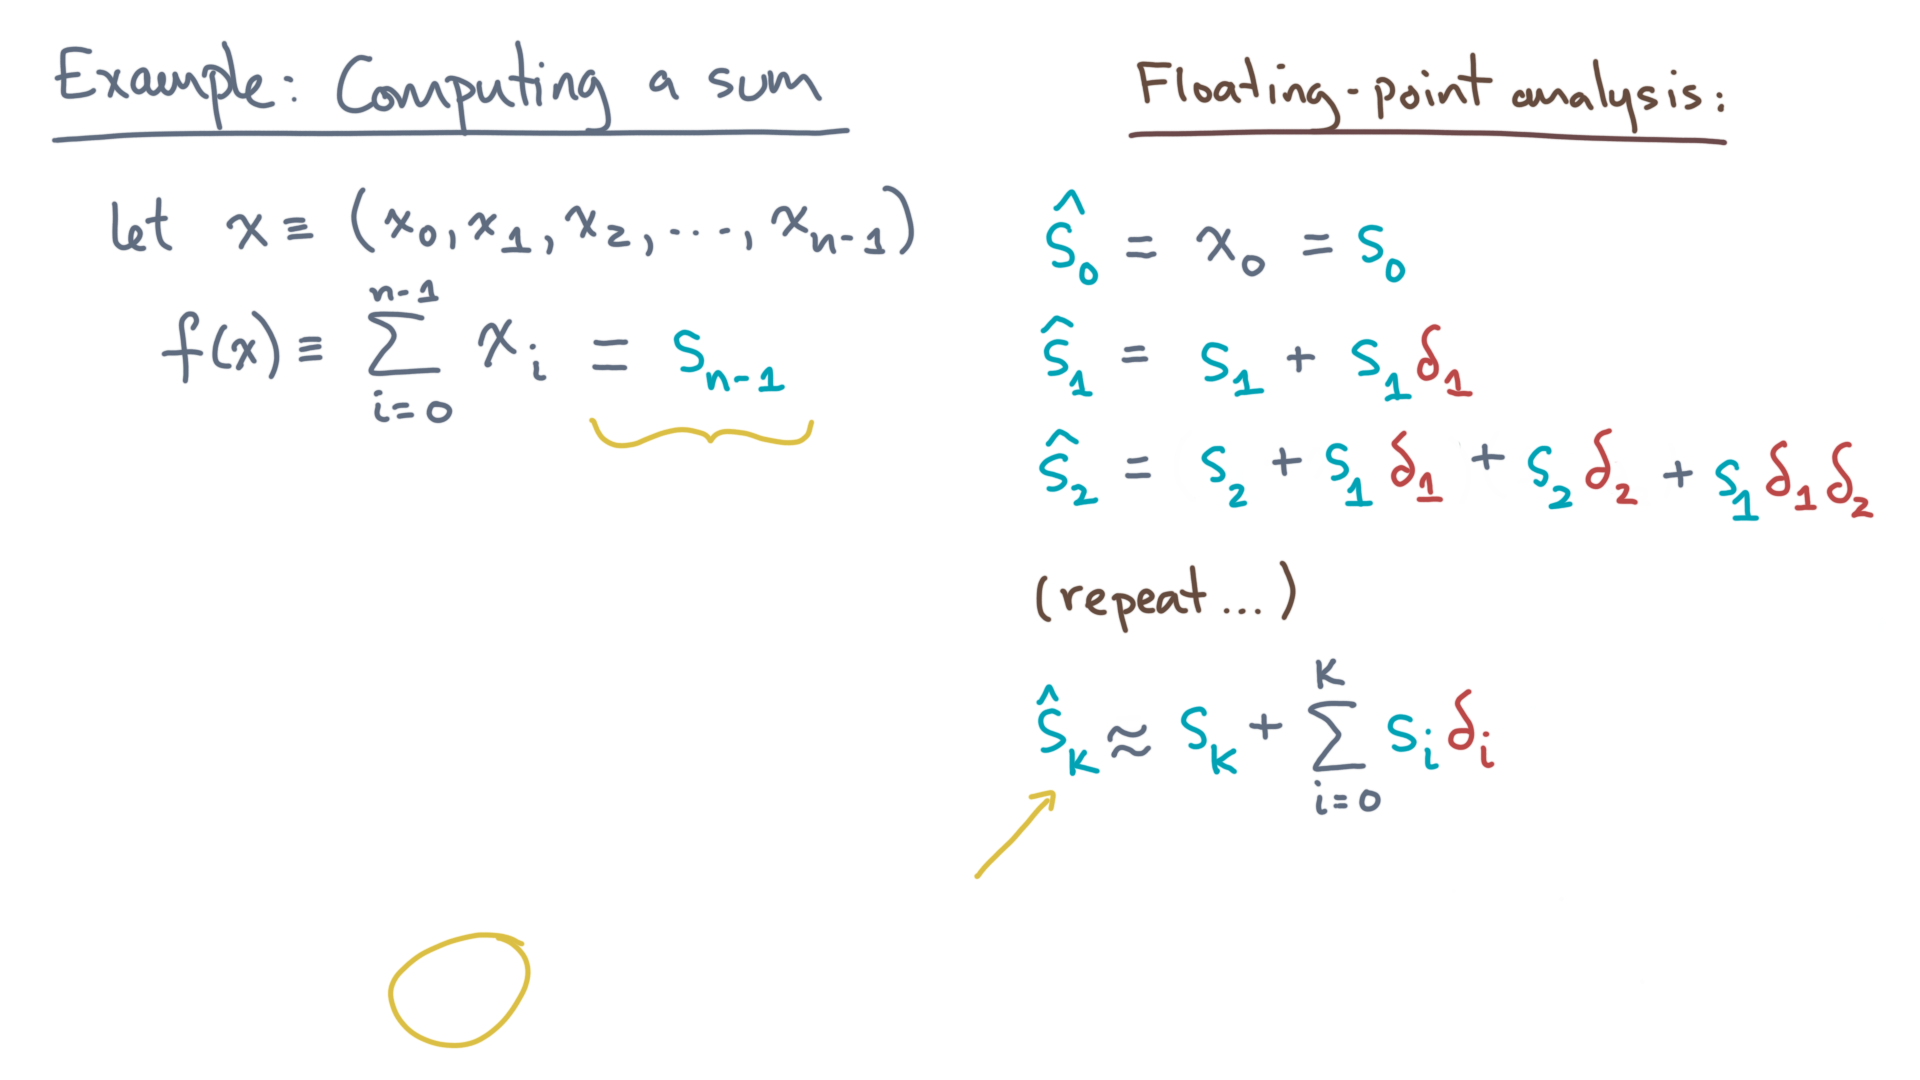 Example: Computing a sum
let x ≡ (x₀, x₁, x₂, ..., xₙ₋₁)
f(x) ≡ ∑_{i=0}^{n-1} xᵢ = sₙ₋₁
Floating-point analysis:
ŝ₀ = x₀ = s₀
ŝ₁ = s₁ + s₁δ₁
ŝ₂ = s₂ + s₁δ₁ + s₂δ₂ + s₁δ₁δ₂
(repeat...)
ŝ_k ≈ s_k + ∑_{i=0}^{k} sᵢδᵢ